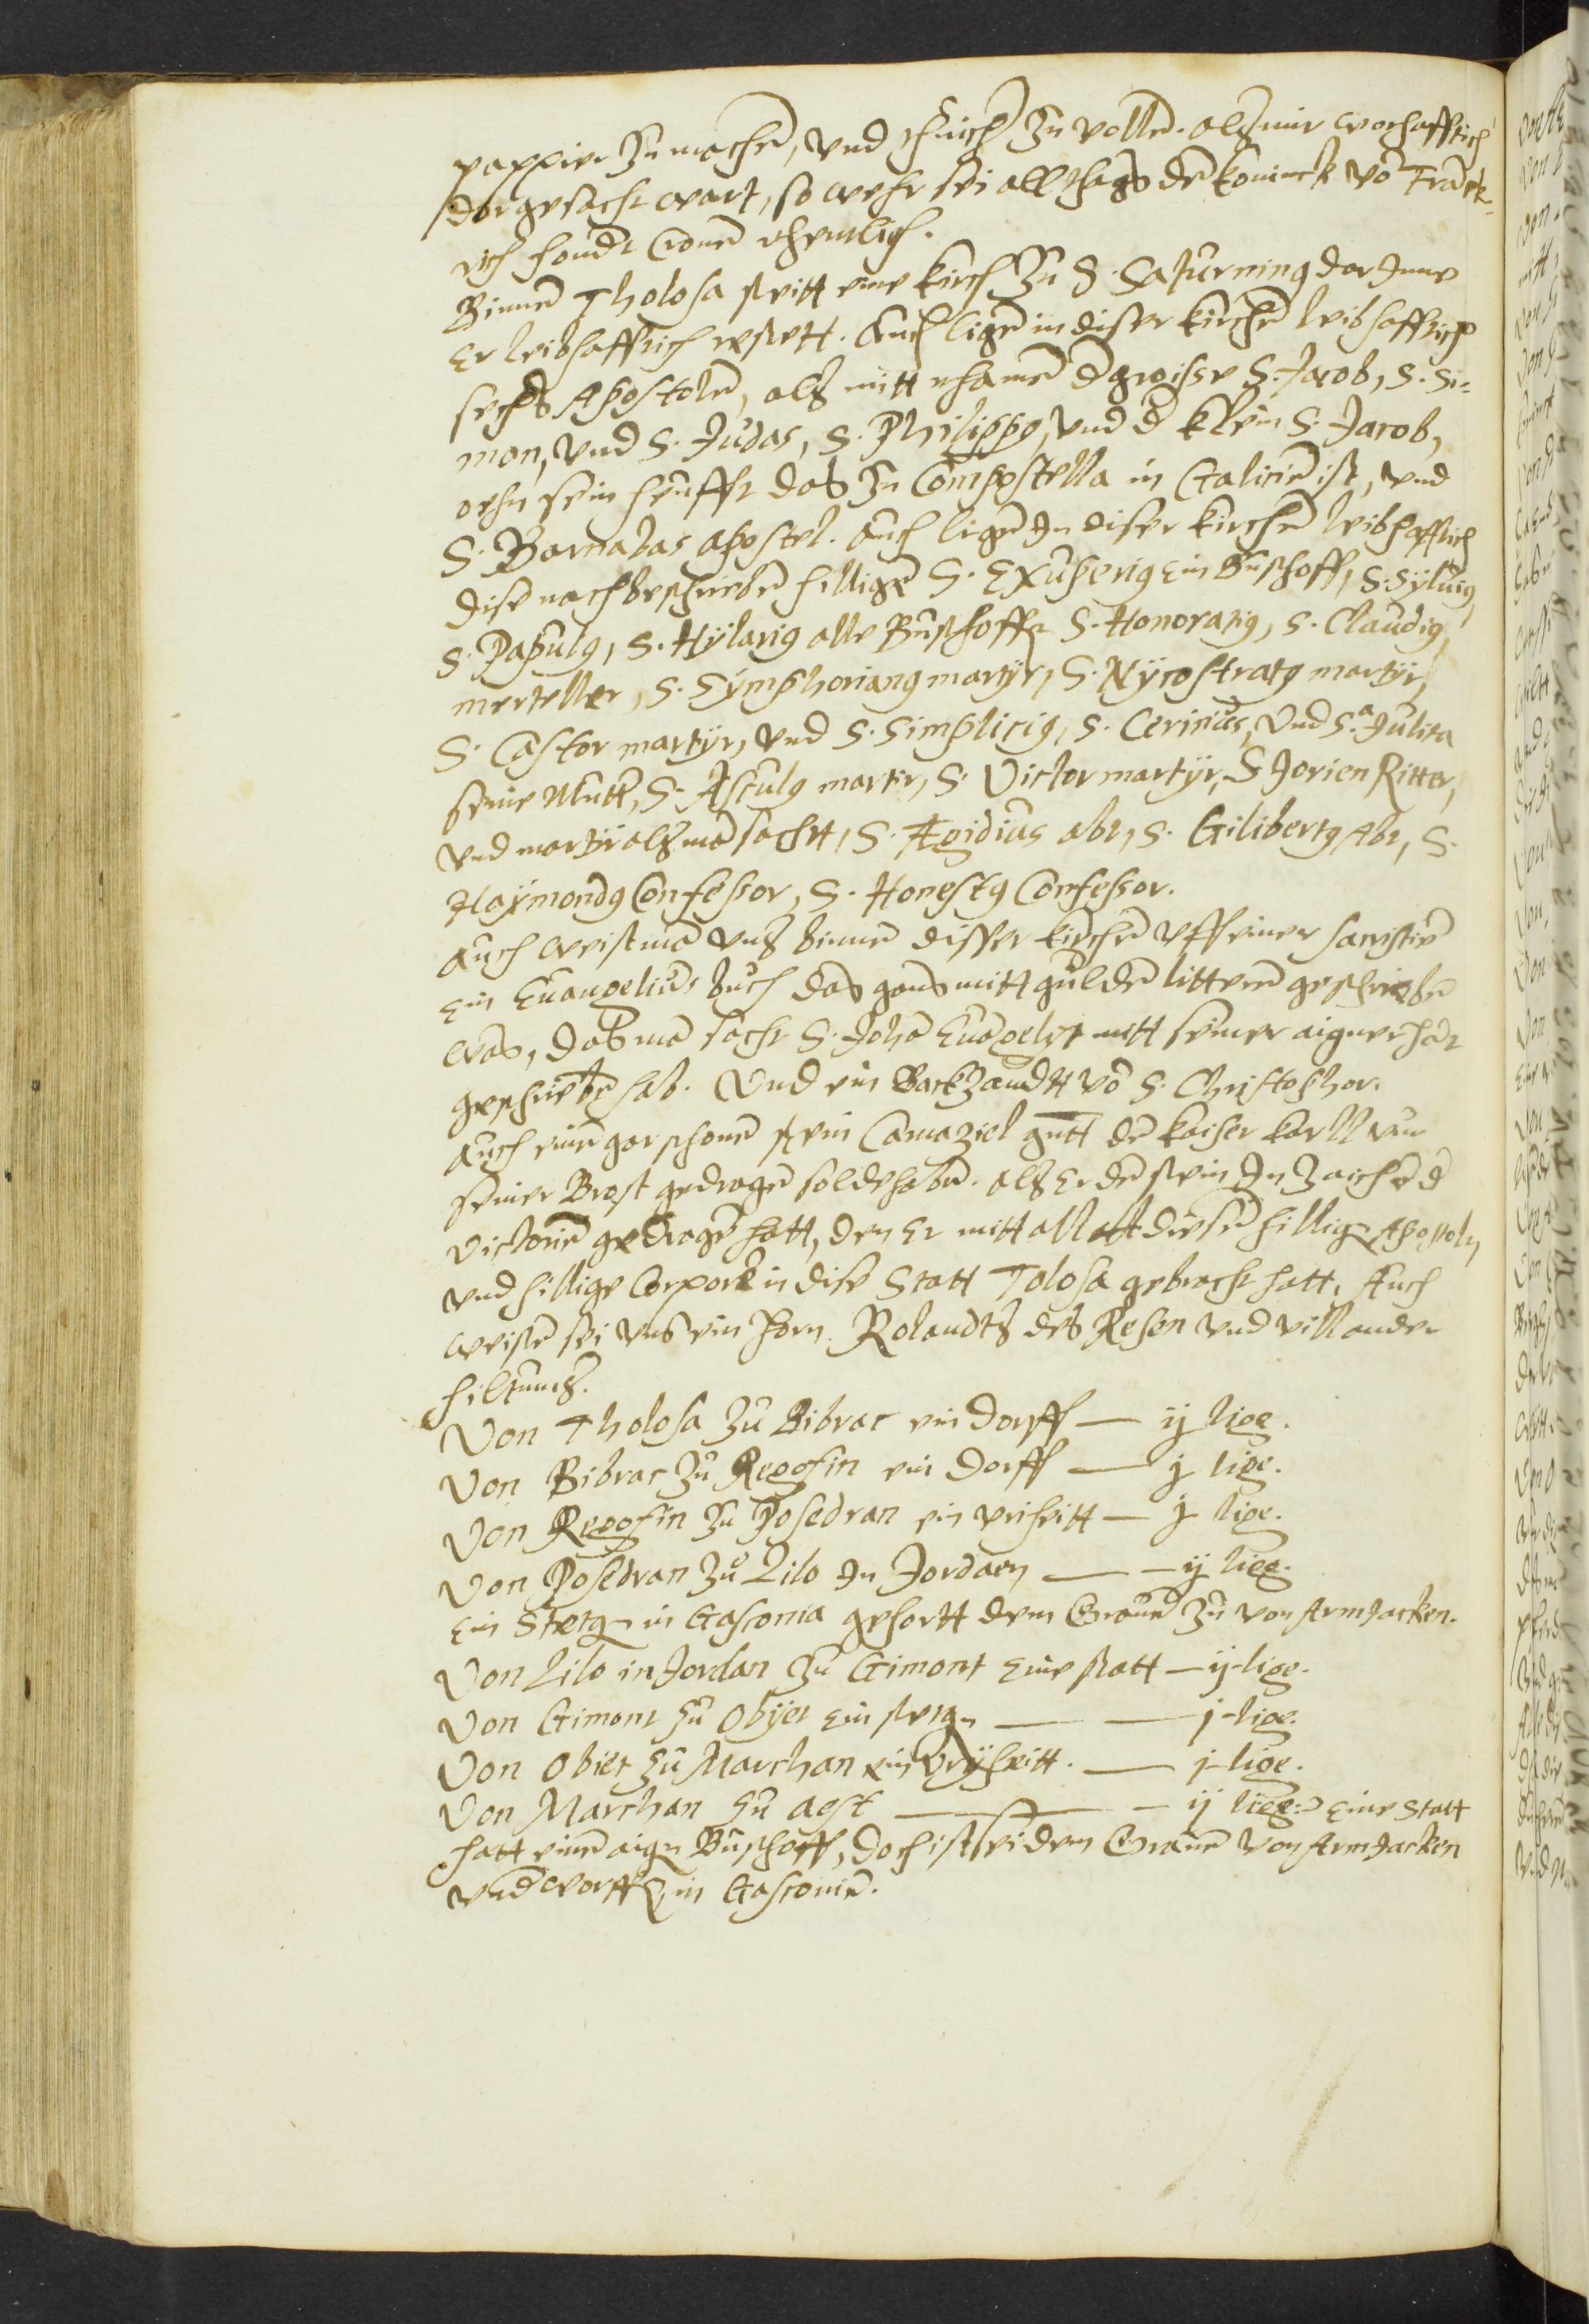 pappier zu machen, vnd thuich zu vollen. alß mir worhafftich
dor gesacht wart, so wehr sei all thags dem koninck vo Franck-
rich houndt Cronen ehewlich.
Binnen Tholosa steitt eine kirch zu S. Saturning dor Inne
Er leibhafftich restett. Auch ligen in diser kirchen leibhafftich
sechs Apostolen, alß mitt nhamen d groisse S. Jacob, S. Si-
mon, vnd S. Judas, S. Philippg, vnd d klein S. Jacob,
oehn sein heufft das zu Compostella in Galicie ist, vnd
S. Barnabas apostel. Auch ligen In diser kirchen leibhafftich
dise nachbeschrieben hilligen S. Exuperig ein Buschoff, S. Sÿluig,
S. Papulg, S. Hÿlarig alle Buschoffe S. Honoratg, S. Claudig,
merteller, S. Sÿmphoriang martÿr, S. Nÿcostratg martÿr,
S. Castor martÿr, vnd S. Simplicig, S. Cerinus, Vnd S.a Julita
seine Mutt, S. Asculg martir, S. Victor martÿr, S Jorien Ritter,
vnd martÿr alß ma sachtt, S. Ægidius abt, S. Gilibertg Abt, S.
Raÿmondg Confessor, S. Honestg Confessor.
Auch weist ma vnß binnen disser kirchen vff einer sacristie
ein Euangelium buch das gans mitt gulden litteren geschrieben
was, das ma sacht S. Joha Euangelist mitt seiner aigner hadt
geschrieben hab. Vnd ein Backzandtt vo S. Christophor.
Auch einen gar schonen stein Camaziel gntt de kaiser karll ann
seiner Brost gedragen solde haben. alß Er den stein In zaichen d
victorien gedragen hatt, den Er mitt all disen hillige Apostoln,
vnd hillige Corpora in dise Statt Tolosa gebracht hatt. Auch
weisen sei vns ein horn Rolandtß des Resen vnd vill ander
hiltumß.
Von Tholosa zu Bibrac ein dorff — ij lige.
Von Bibrac zu Regosin ein dorff — j lige.
Von Regosin zu Posedran ein vriheitt — j lige.
Von Posedran zu Lilo In Jordaen — — ij lieg.
Ein Stetg in Gasconia gehortt dem Grauen zu von Armjacken.
Von Lilo in Jordan zu Gimont eine statt — ij lige.
Von Gimont zu Obÿet ein stetg — — j lige.
Von Obiet zu Marchan ein vrÿheitt. — j lige.
Von Marchan zu Aest — — ij lieg: eine Statt
hatt einen aign Buschoff, doch ist sei dem Grauen von Armjacken
vnd worff in Gasconien.